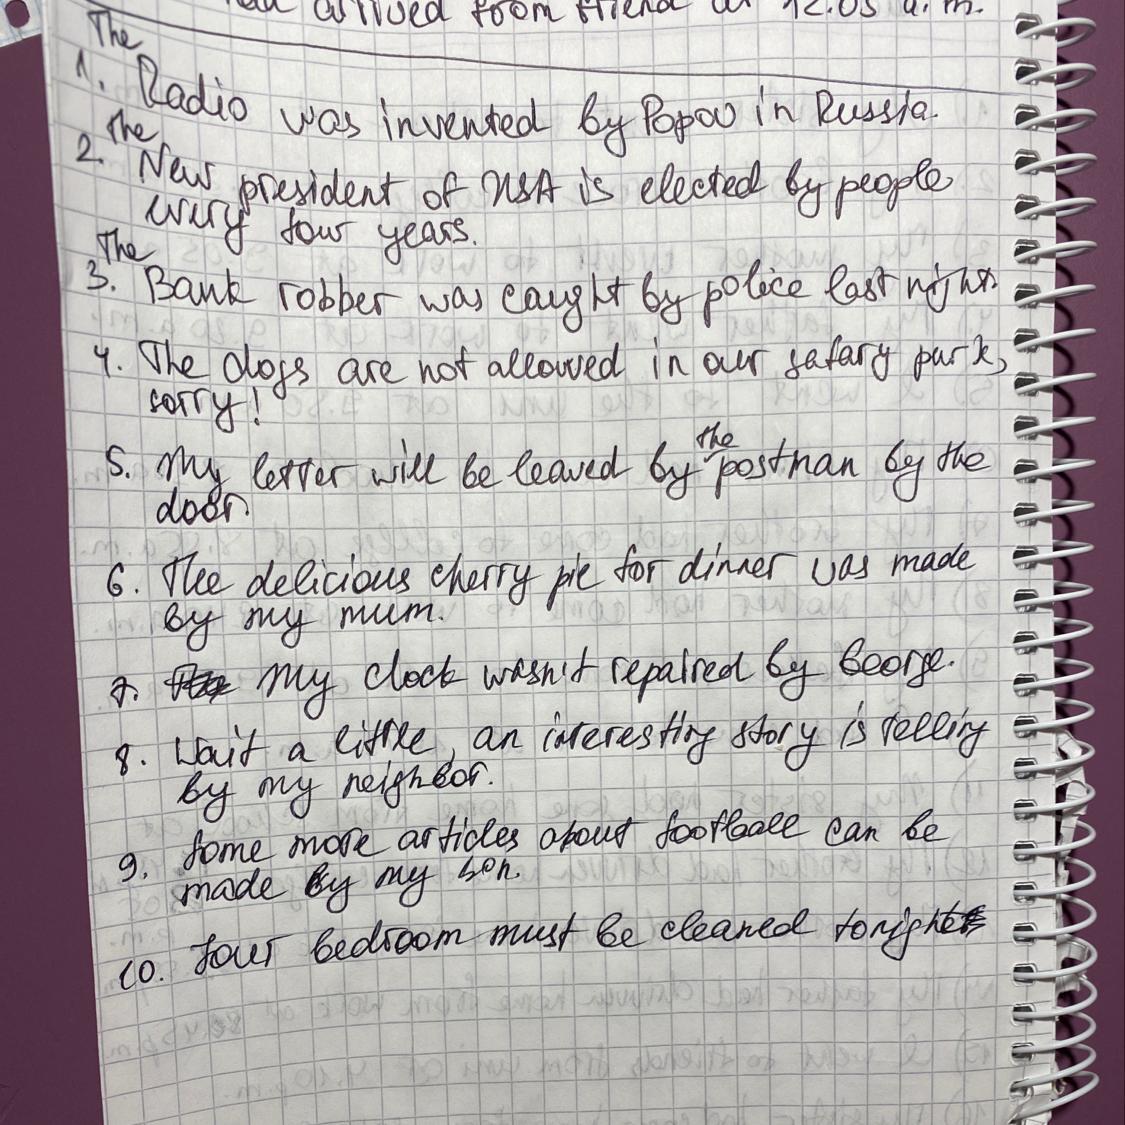 arrived from friend at 12.05 a.m.
The
1. Radio was invented by Popov in Russia.
The
2. New president of USA is elected by people
every four years.
The
3. Bank robber was caught by police last night
4. The dogs are not allowed in our safary park,
sorry!
the
5. My letter will be leaved by postman by the
door.
6. The delicious cherry pie for dinner was made
by my mum.
7. My clock wasn't repaired by George.
8. Wait a little, an interesting story is telling
by my neighbor.
9. Some more articles about football can be
made by my son.
10. Your bedroom must be cleaned tonight